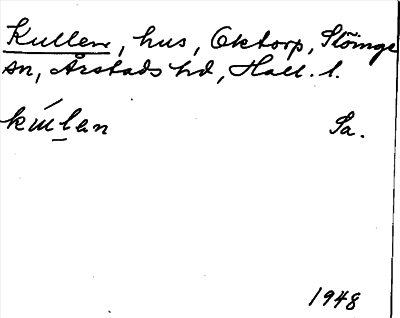 Kullen, hus, Oktorp, Slöinge
sn, Årstads hd, Hall. l.
kúlan Sa.
1948